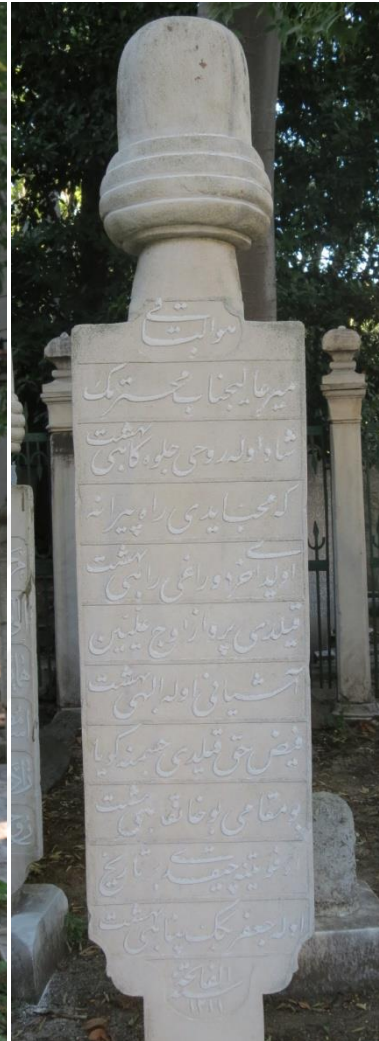 هو الباقي
مير عاليجناب محترمك
شاد اوله روحی جلوه كاهی بهشت
كه محب ایدی راه پیرانه
اولدی آخر دو راغی راهی بهشت
قیلدی پرواز اوج علیین
آشیانی اوله الهی بهشت
فیض حق قیلدی همدمنه كویا
بو مقامی بو خانقاهی بهشت
چیقدی بر تاریخ
اوله جعفر بكك پناهی بهشت
الفاتحة
سنه ١٢١١